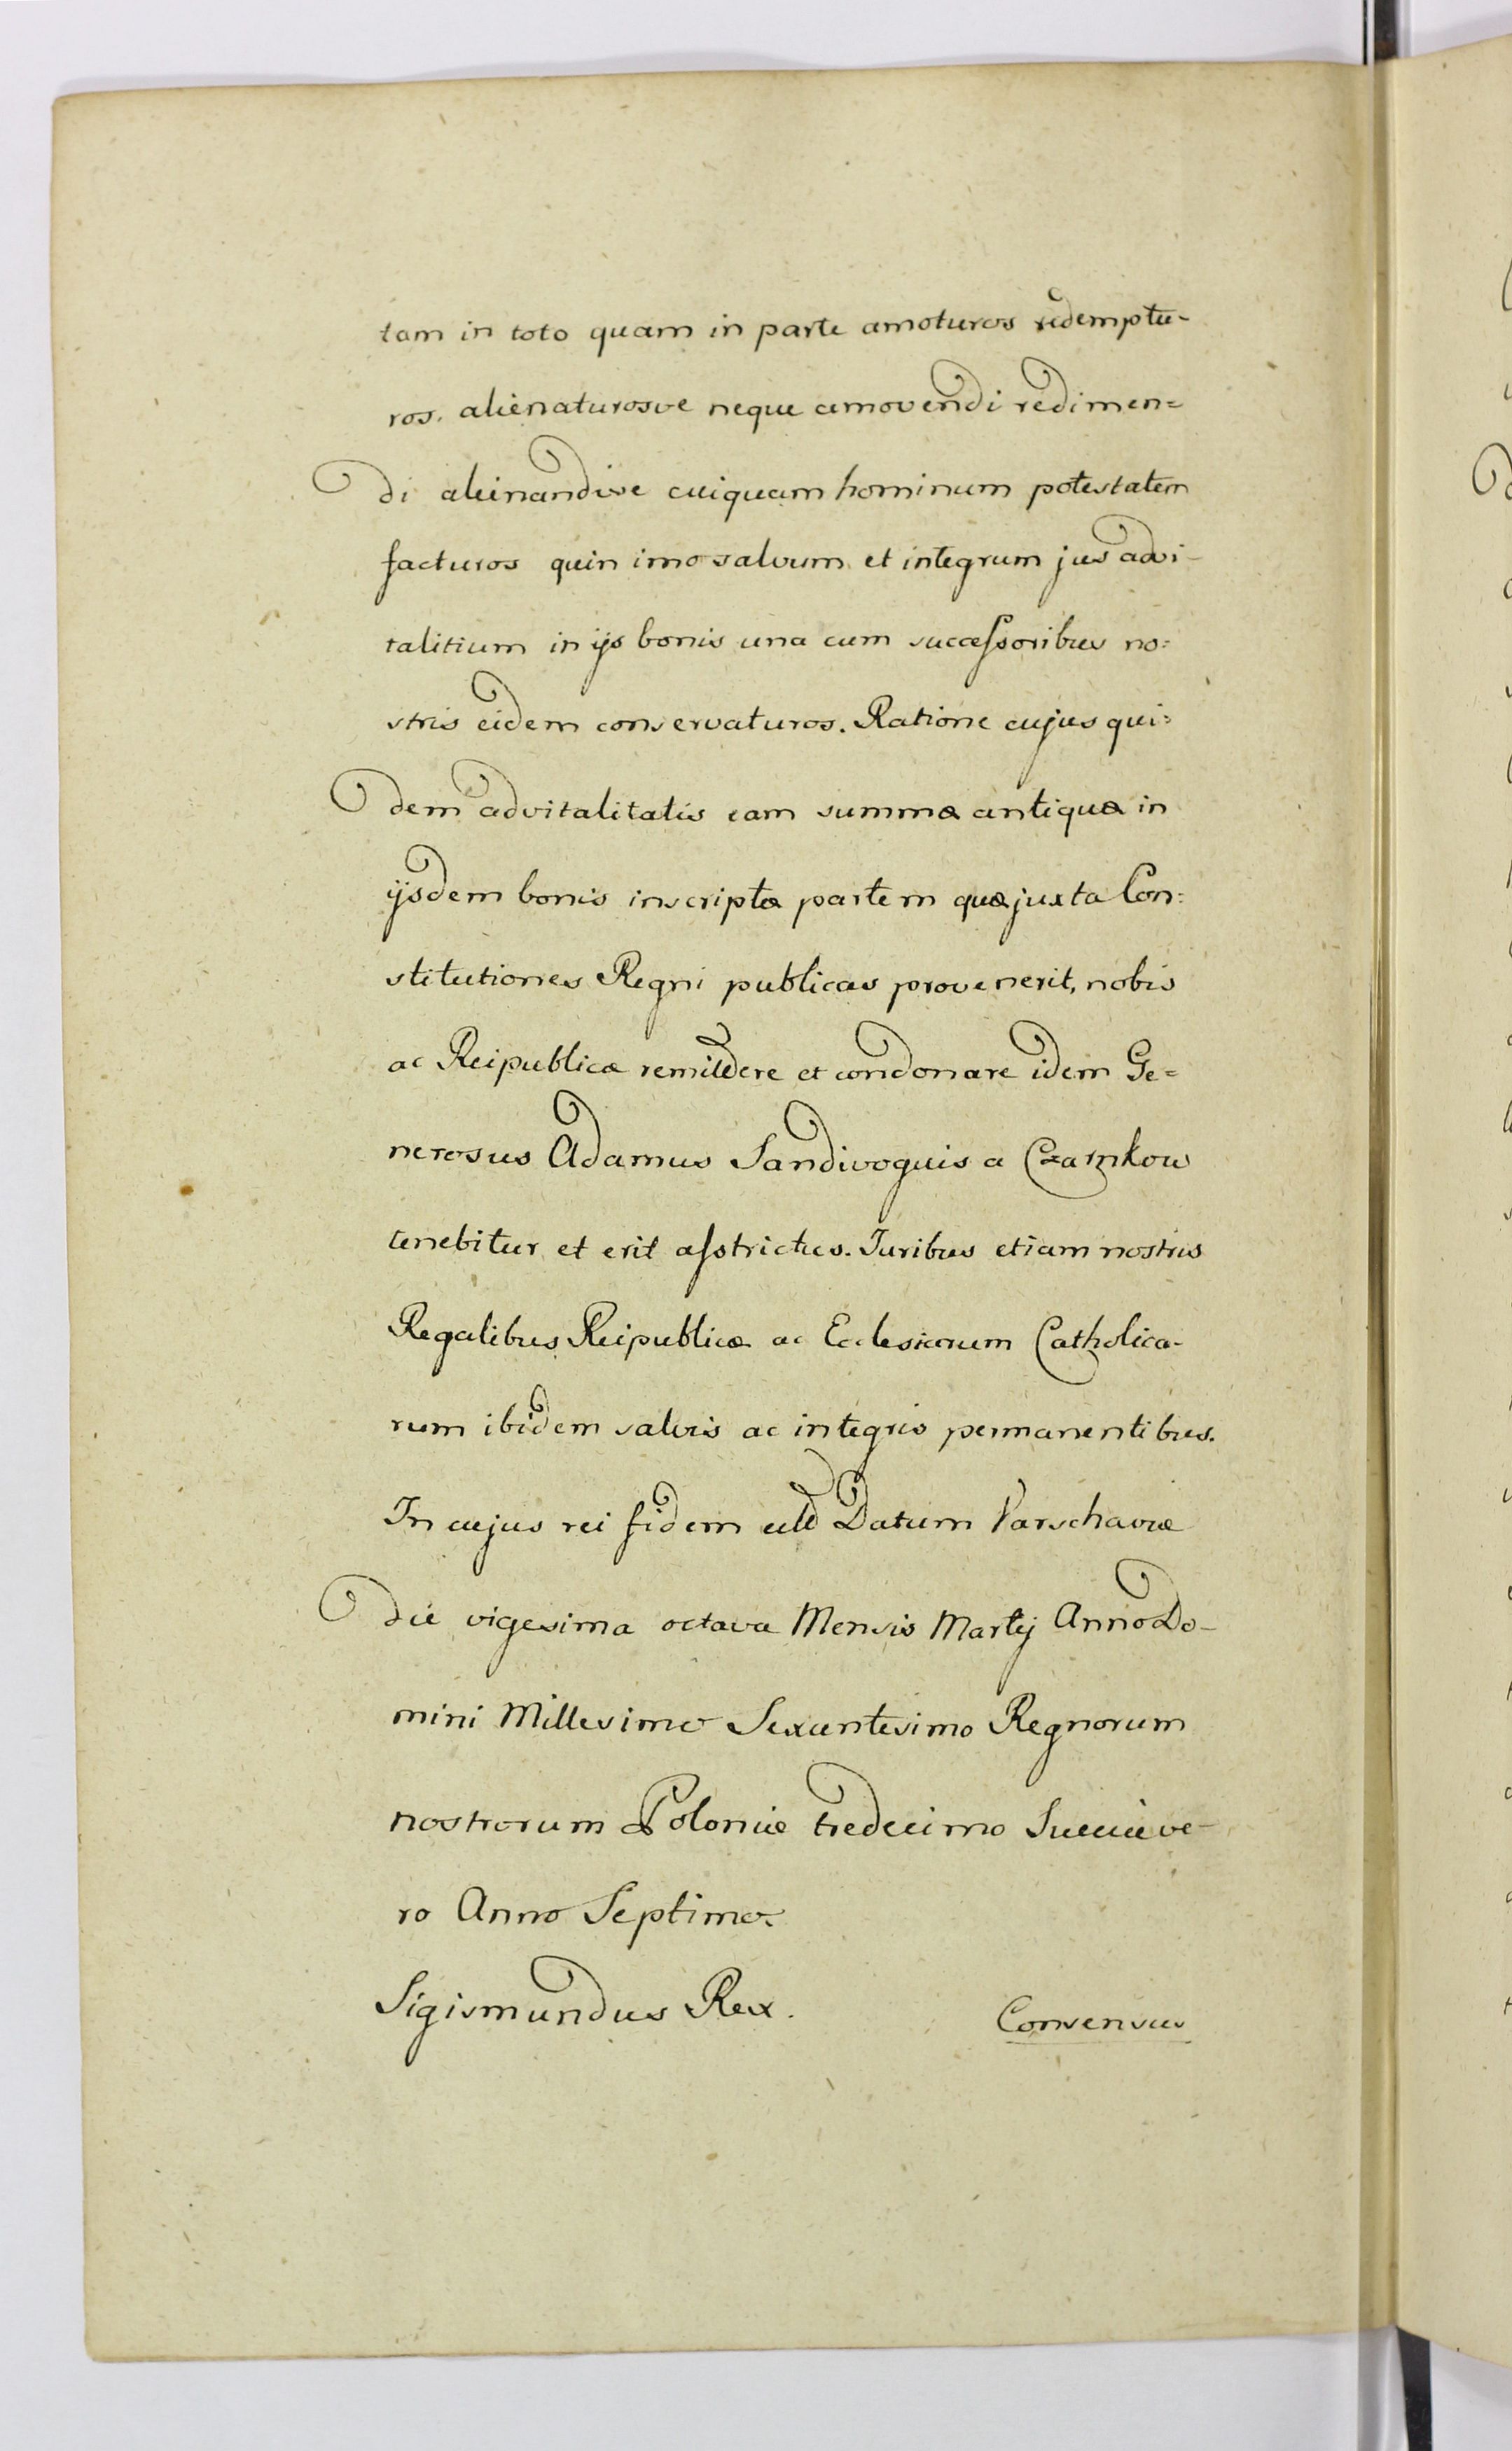 tam in toto quam in parte amoturos redemptu-
ros. alienaturosve neque amovendi redimen=
di alienandive cuiquam hominum potestatem
facturos quin imo salvum et integrum jus advi-
talitium in ijs bonis una cum successoribus no=
stris eidem conservaturos. Ratione cujus qui=
dem advitalitatis eam summæ antiquæ in
ijsdem bonis inscriptæ partem quæ juxta Con=
stitutiones Regni publicas provenerit, nobis
ac Reipublicæ remittere et condonare idem Ge=
nerosus Adamus Sandivogius a Czarnkow
tenebitur et erit asstrictus. Juribus etiam nostris
Regalibus Reipublicæ ac Ecclesiarum Catholica-
rum ibidem salvis ac integris permanentibus.
In cujus rei fidem Datum Varschaviæ
die vigesima octava Mensis Martij Anno Do-
mini Millesimo Sexcentesimo Regnorum
nostrorum Poloniæ tredecimo Sueciæ ve-
ro Anno Septimo.
Sigismundus Rex.
Consensus